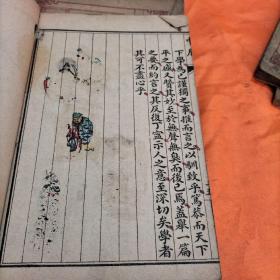 下學為己謹獨之事推而言之以馴致乎篤恭而天下
平之盛又贊其妙至於無聲無臭而後已焉蓋舉一篇
之要而約言之其反復丁寧示人之意至深切矣學者
其可不盡心乎